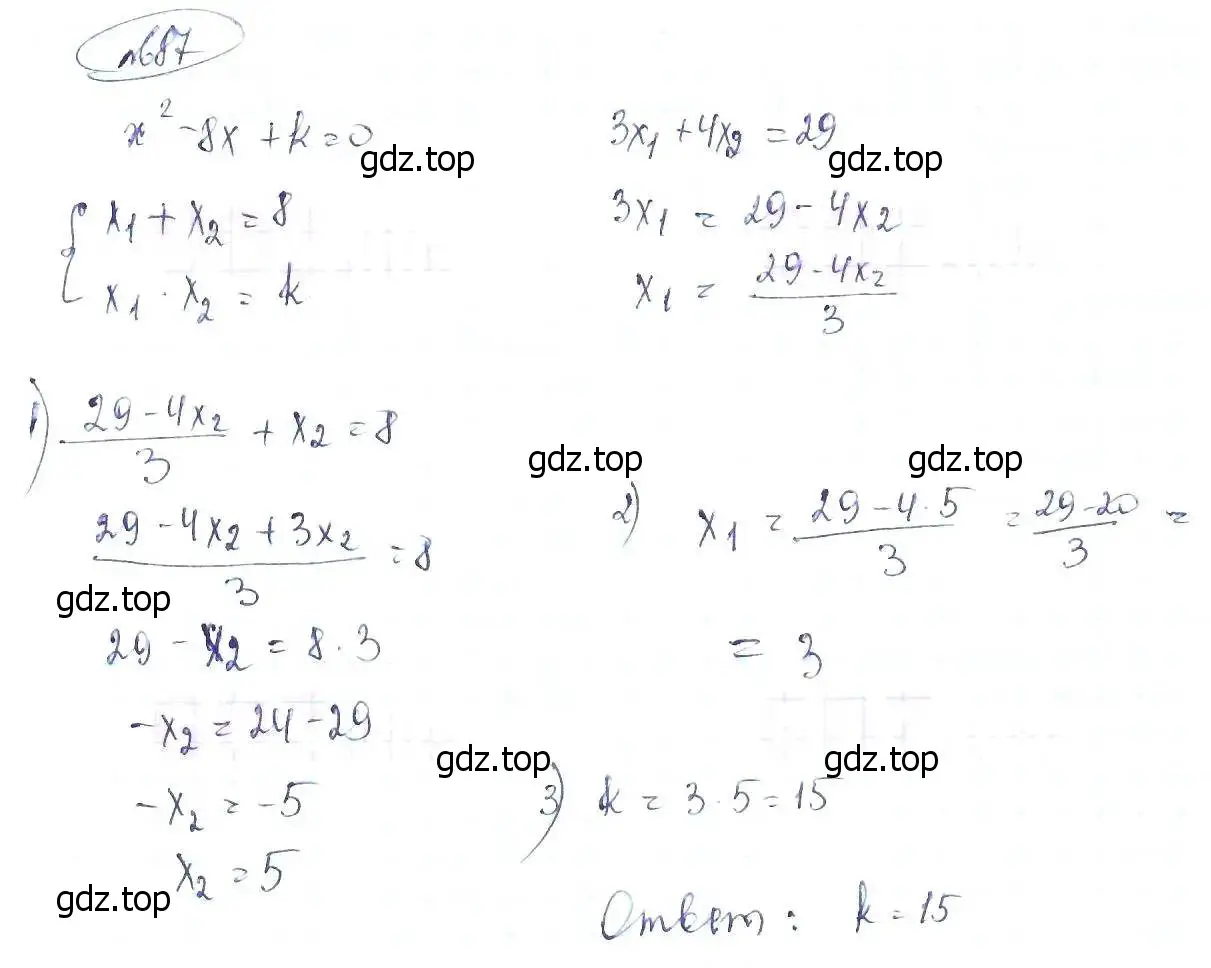 №687
x² - 8x + k = 0
gdz.top
{ x₁ + x₂ = 8
x₁ · x₂ = k
3x₁ + 4x₂ = 29
gdz.top
3x₁ = 29 - 4x₂
x₁ = (29 - 4x₂)/3
1) (29 - 4x₂)/3 + x₂ = 8
gdz.top
(29 - 4x₂ + 3x₂)/3 = 8
gdz.top
29 - x₂ = 8 · 3
-x₂ = 24 - 29
gdz.top
-x₂ = -5
x₂ = 5
gdz.top
gdz.top
2) x₁ = (29 - 4 · 5)/3 = (29 - 20)/3 =
= 3
gdz.top
3) k = 3 · 5 = 15
Ответ: k = 15